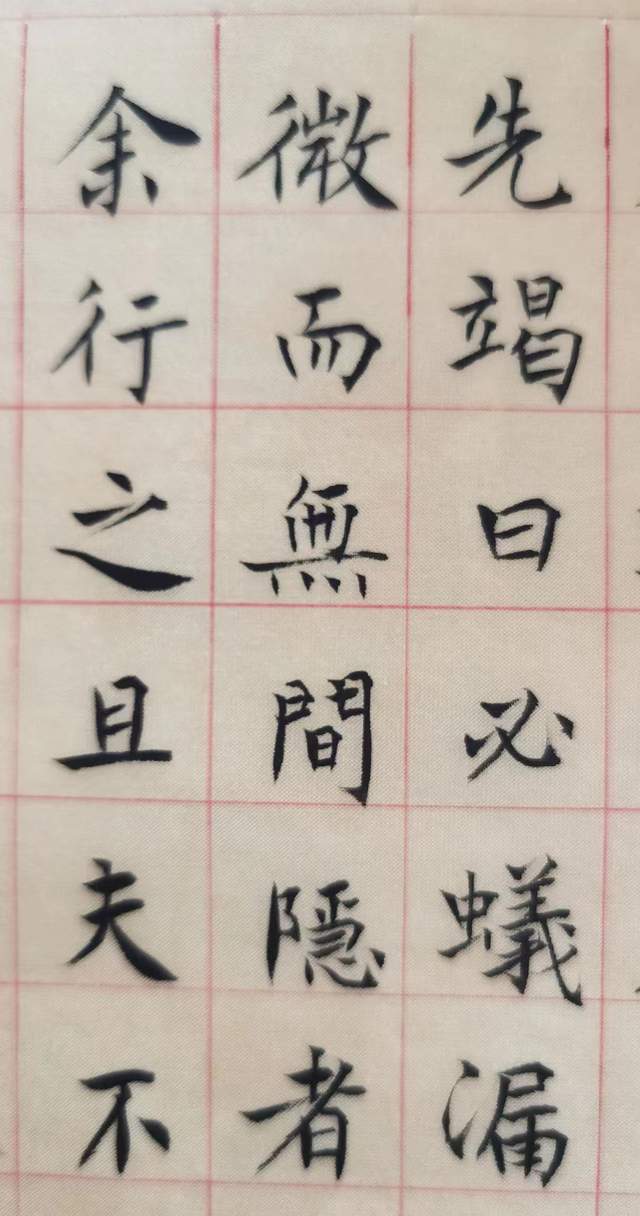 先竭曰必蟻漏
微而無間隱者
余行之且夫不